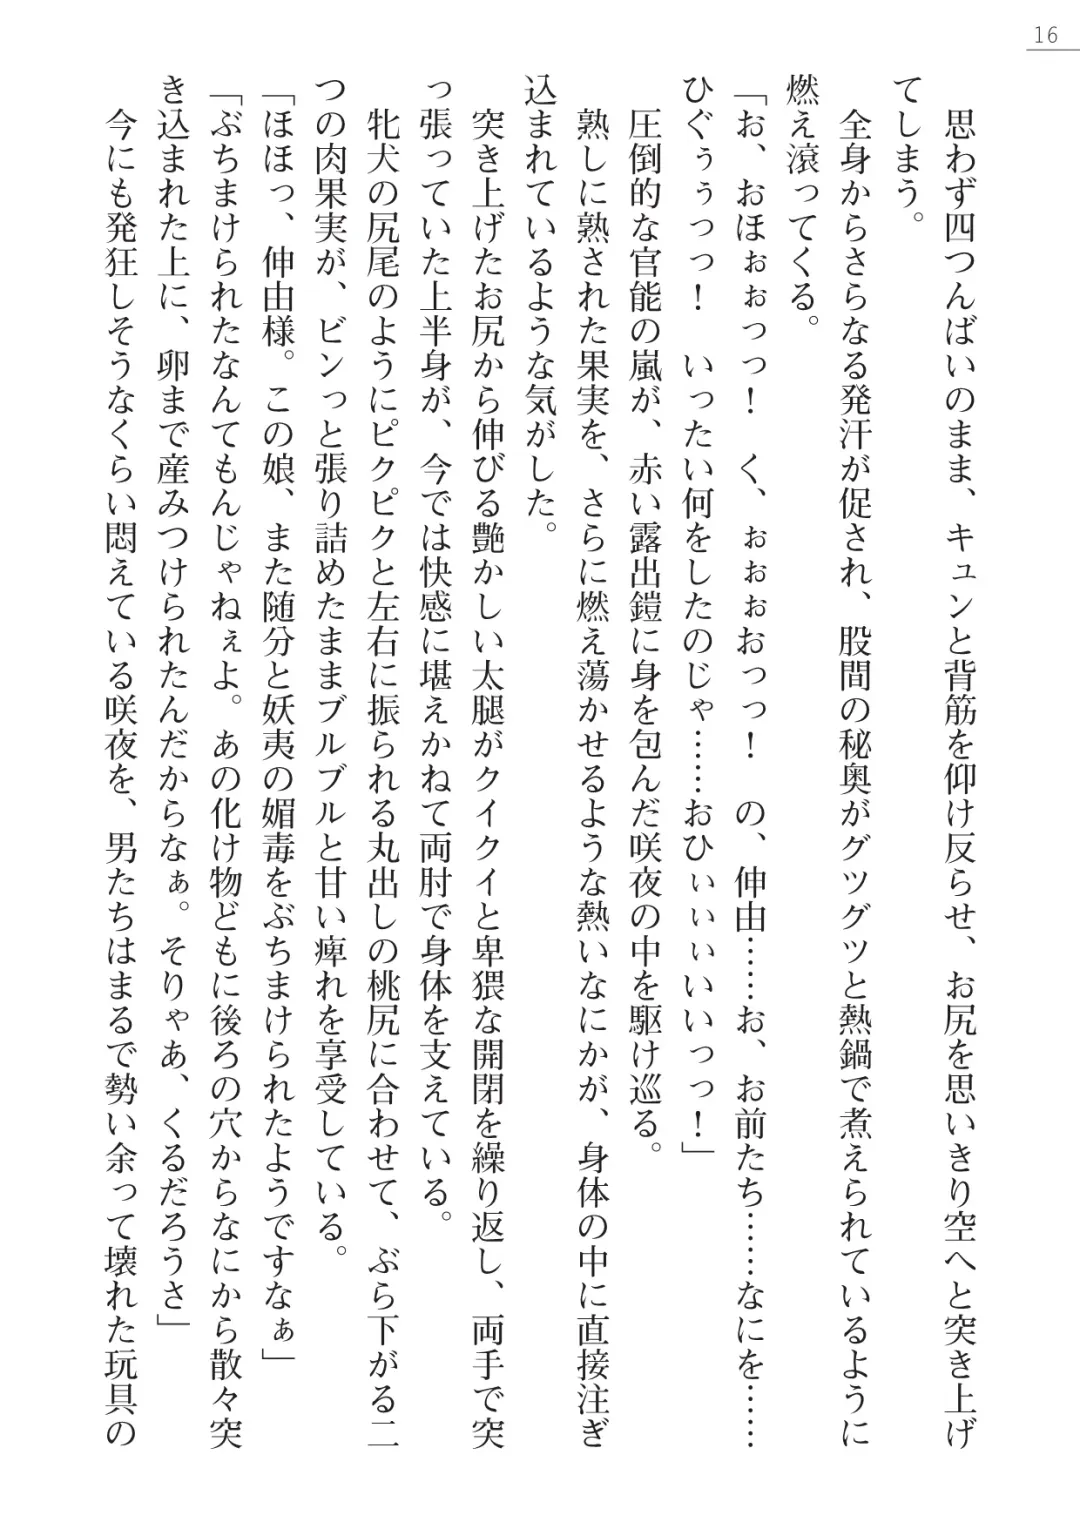 16
思わず四つんばいのまま、キュンと背筋を仰け反らせ、お尻を思いきり空へと突き上げ
てしまう。
全身からさらなる発汗が促され、股間の秘奥がグツグツと熱鍋で煮えられているように
燃え滾ってくる。
「お、おほぉぉっっ！　く、ぉぉぉおっっ！　の、伸由……お、お前たち……なにを……
ひぐぅぅっっ！　いったい何をしたのじゃ……おひぃぃぃいいっっ！」
圧倒的な官能の嵐が、赤い露出鎧に身を包んだ咲夜の中を駆け巡る。
熟しに熟された果実を、さらに燃え蕩かせるような熱いなにかが、身体の中に直接注ぎ
込まれているような気がした。
突き上げたお尻から伸びる艶かしい太腿がクイクイと卑猥な開閉を繰り返し、両手で突
っ張っていた上半身が、今では快感に堪えかねて両肘で身体を支えている。
牝犬の尻尾のようにピクピクと左右に振られる丸出しの桃尻に合わせて、ぶら下がる二
つの肉果実が、ビンっと張り詰めたままブルブルと甘い痺れを享受している。
「ほほっ、伸由様。この娘、また随分と妖夷の媚毒をぶちまけられたようですなぁ」
「ぶちまけられたなんてもんじゃねぇよ。あの化け物どもに後ろの穴からなにから散々突
き込まれた上に、卵まで産みつけられたんだからなぁ。そりゃあ、くるだろうさ」
今にも発狂しそうなくらい悶えている咲夜を、男たちはまるで勢い余って壊れた玩具の